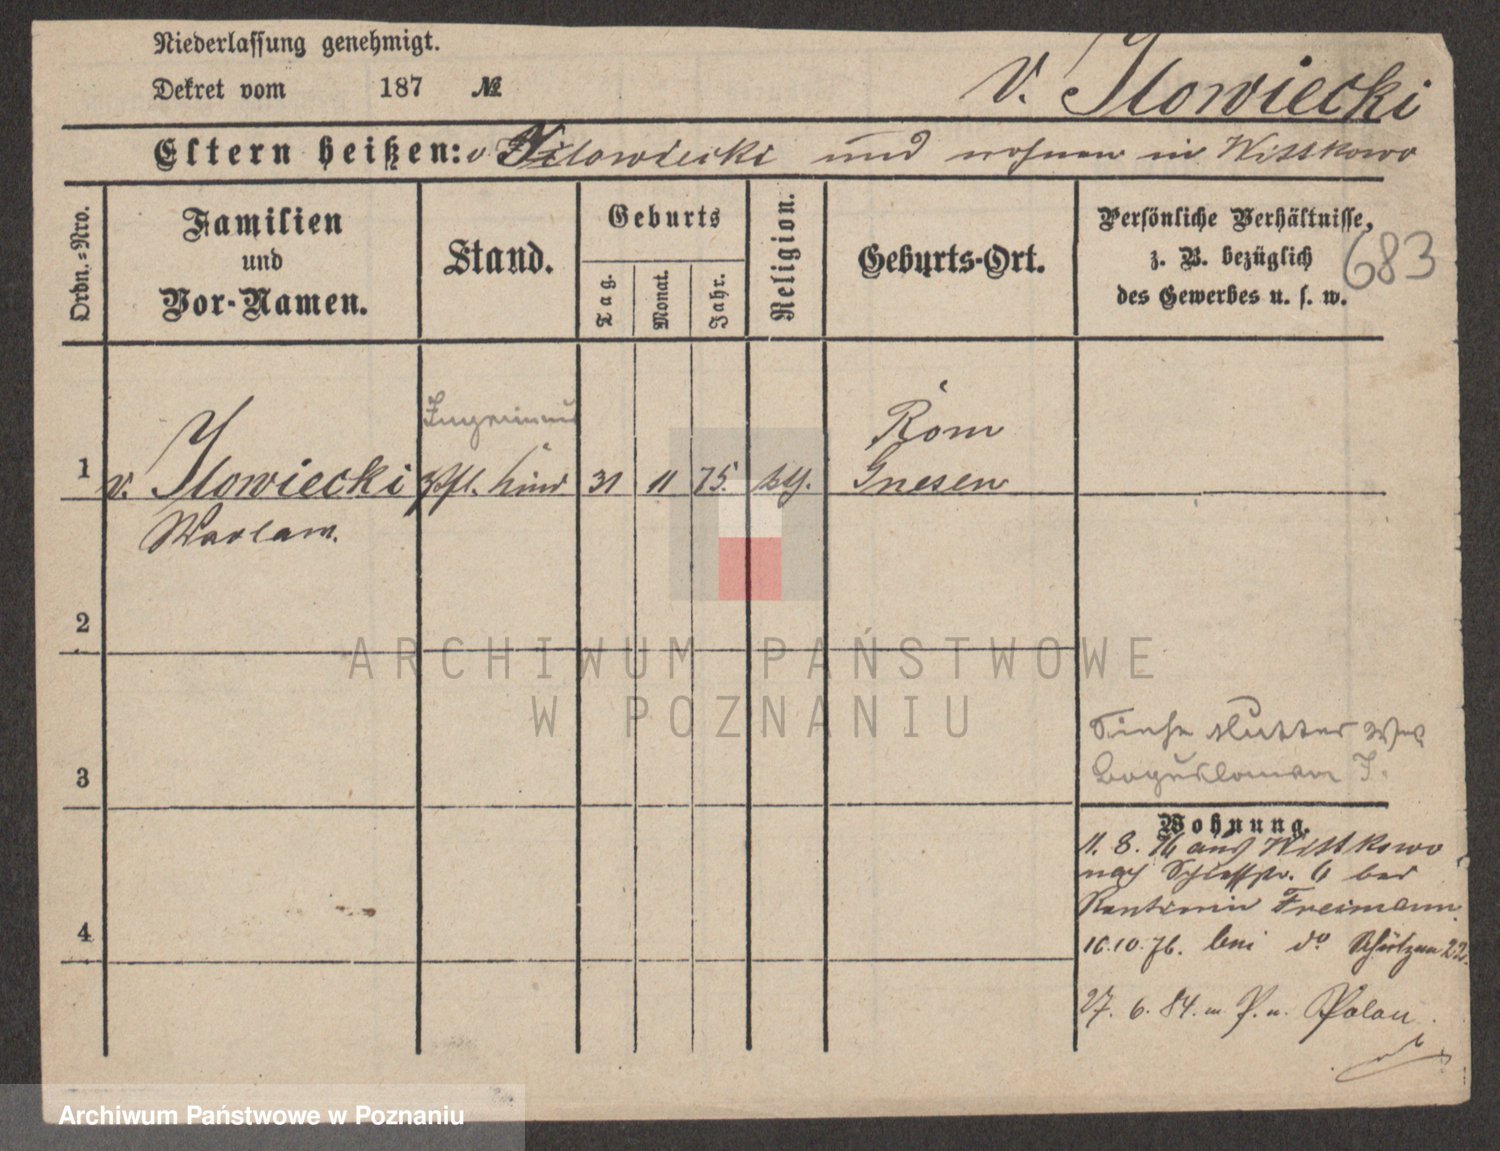 Niederlassung genehmigt.
Dekret vom 187 №
v. Ilowiecki
Eltern heißen: v Ilowiecki und wohnen in Wittkowo
Ordn.-Nro.
Familien
und
Vor-Namen.
Stand.
Geburts
Tag.
Monat.
Jahr.
Religion.
Geburts-Ort.
Persönliche Verhältnisse,
z. B. bezüglich
des Gewerbes u. s. w.
683
1
v. Ilowiecki
Pfl. Kind
31 11 75. kth.
Rom
Gnesen
2
ARCHIWUM PAŃSTWOWE
W POZNANIU
3
Siehe Mutter
I.
Wohnung.
11. 8. 76 aus Wittkowo
nach 6 bei
Freimann.
10.10.76. bei do Schützen 22.
4
27. 6. 84. m P. n. Polen
Archiwum Państwowe w Poznaniu